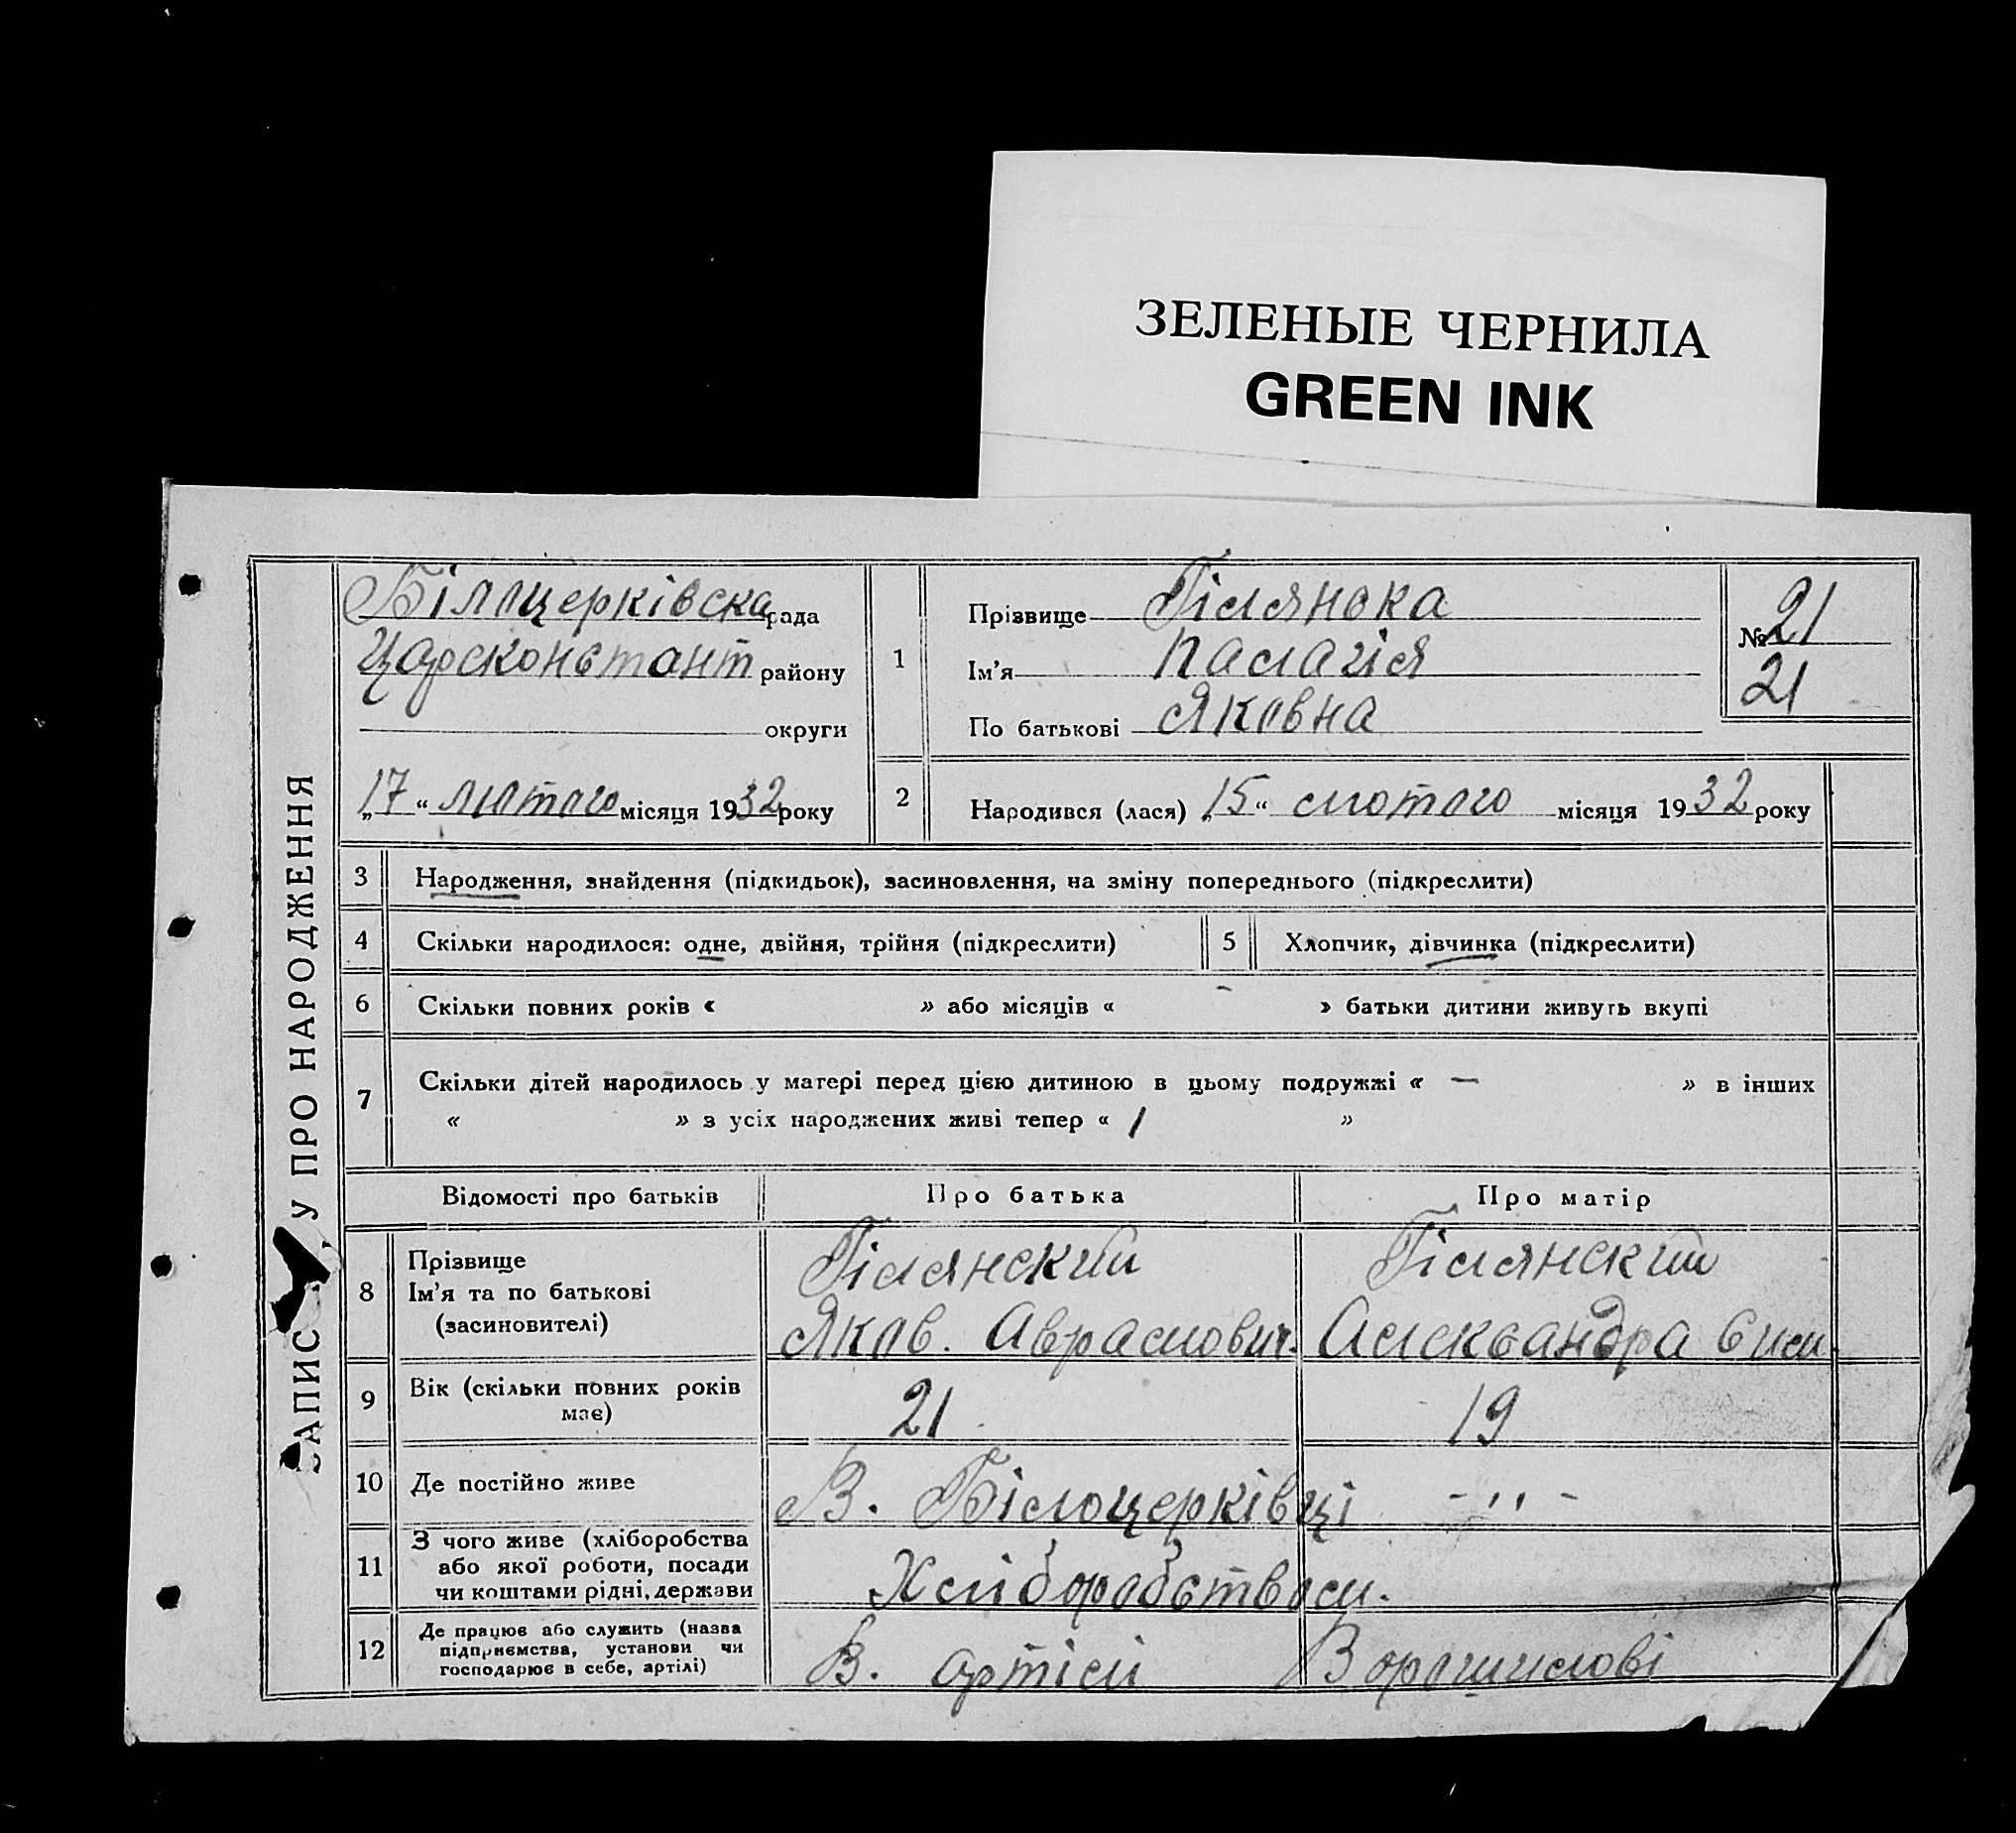 ЗЕЛЕНЫЕ ЧЕРНИЛА
GREEN INK
ЗАПИС У ПРО НАРОДЖЕННЯ
Білоцерківска рада
Царсконстант району
округи
„17“ лютого місяця 1932 року
1
Прізвище Гілянска
Ім'я Палагія
По батькові Яковна
№ 21
21
2
Народився (лася) „15“ лютого місяця 1932 року
3 Народження, знайдення (підкидьок), засиновлення, на зміну попереднього (підкреслити)
4 Скільки народилося: одне, двійня, трійня (підкреслити)
5 Хлопчик, дівчинка (підкреслити)
6 Скільки повних років « » або місяців « » батьки дитини живуть вкупі
7 Скільки дітей народилось у матері перед цією дитиною в цьому подружжі « — » в інших
« » з усіх народжених живі тепер « 1 »
Відомості про батьків Про батька Про матір
8 Прізвище
Ім'я та по батькові
(засиновителі)
Гілянский
Яков. Аврамович.
Гілянский
Александра
9 Вік (скільки повних років
має)
21 19
10 Де постійно живе В. Білоцерківці - ,, -
11 З чого живе (хліборобства
або якої роботи, посади
чи коштами рідні, держави
Хліборобством.
12 Де працює або служить (назва
підприємства, установи чи
господарює в себе, артілі)
В. артілі Ворошилові